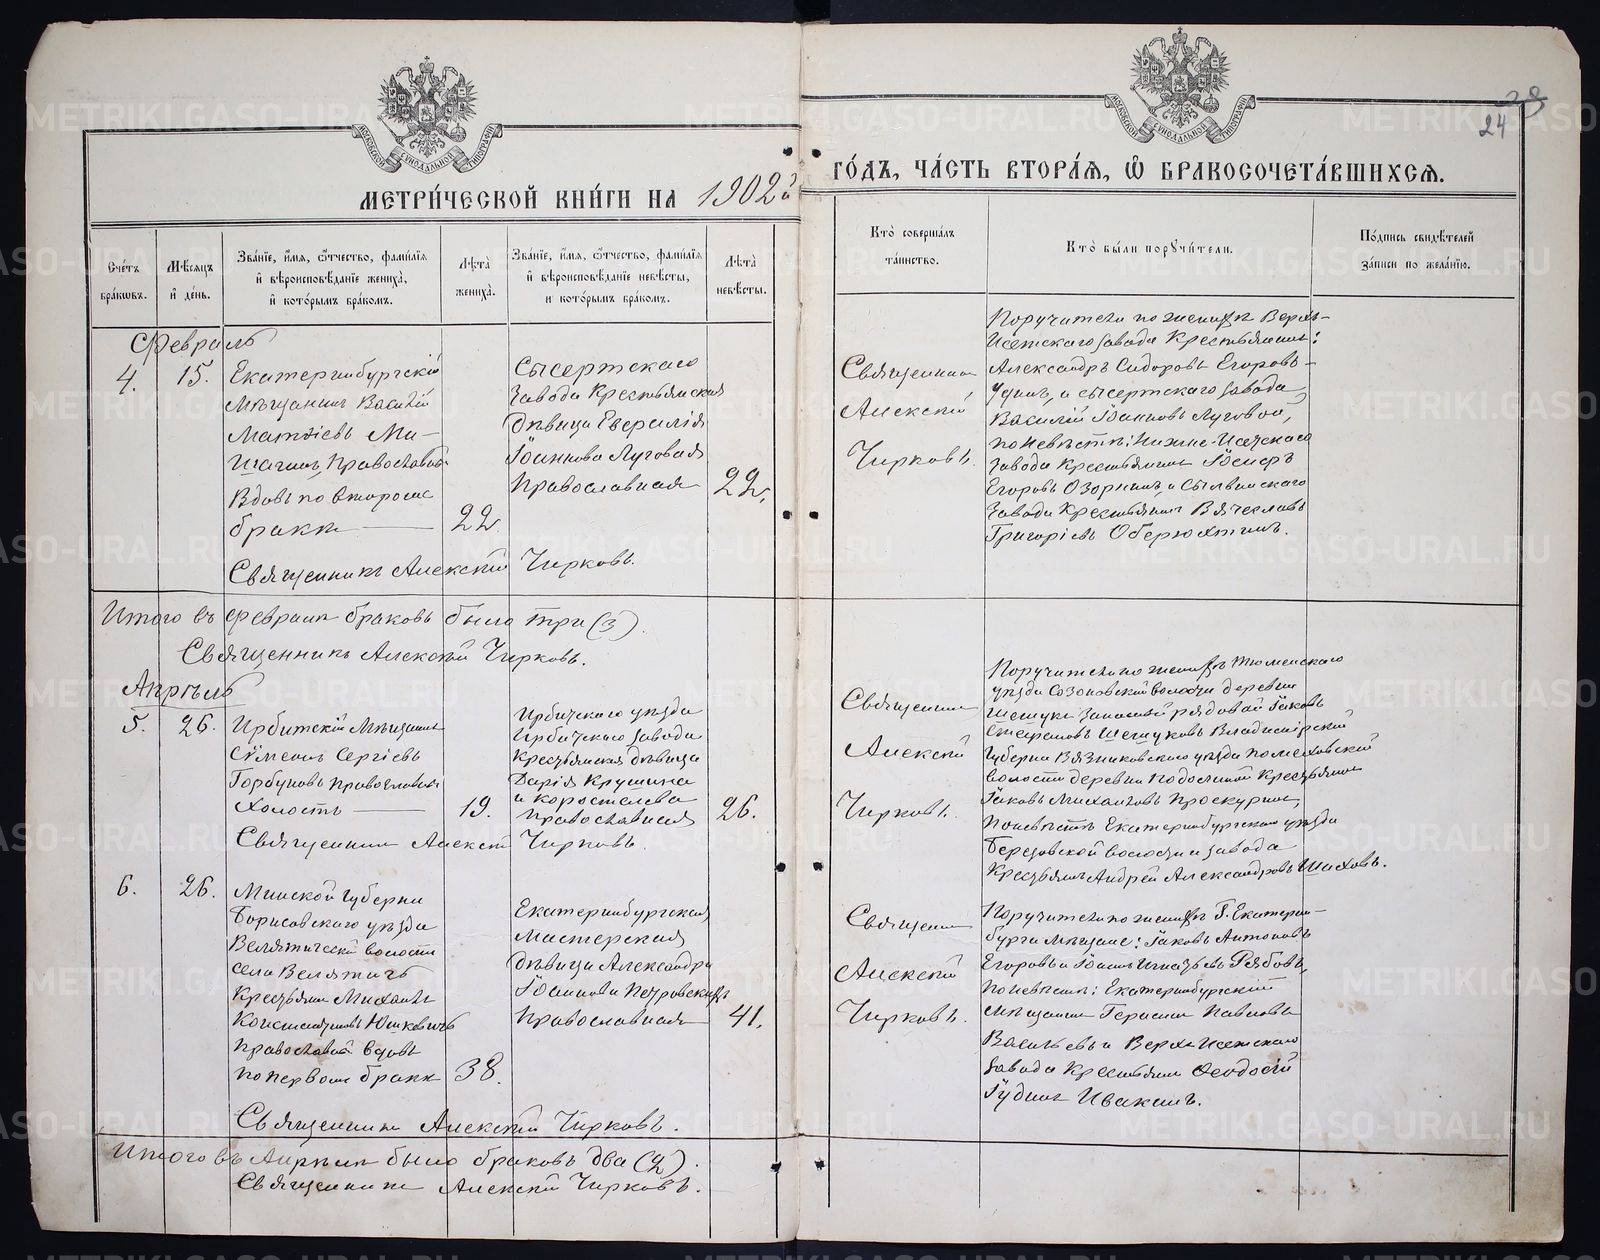 28
24
МОСКОВСКОЙ СѴНОДАЛЬНОЙ ТИПОГРАФІИ
МОСКОВСКОЙ СѴНОДАЛЬНОЙ ТИПОГРАФІИ
МЕТРИ́ЧЕСКОЙ КНИ́ГИ НА 1902й
ГО́ДЪ, ЧА́СТЬ ВТОРА́Ѧ, Ѡ҆ БРАКОСОЧЕТА́ВШИХСѦ.
Сче́тъ бра́кѡвъ.
Мѣ́сѧцъ и҆ де́нь.
Зва́нїе, и҆́мѧ, ѻ҆́тчество, фами́лїѧ и҆ вѣроисповѣ́данїе жениха̀, и҆ кото́рымъ бра́комъ.
Лѣ́та жениха̀.
Зва́нїе, и҆́мѧ, ѻ҆́тчество, фами́лїѧ и҆ вѣроисповѣ́данїе невѣ́сты, и҆ кото́рымъ бра́комъ.
Лѣ́та невѣ́сты.
Кто̀ соверша́лъ та́инство.
Кто̀ бы́ли порꙋчи́тели.
По́дпись свидѣ́телей за́писи по жела́нїю.
Февраль
4. 15.
Екатеринбургскій
мѣщанинъ Василій
Матѳіевъ Ми-
шагинъ, православн.
вдовъ по второмъ
бракѣ
22
Сысертскаго
завода крестьянская
дѣвица Еверилія
Іоаннова Луговая
православная
22.
Священникъ
Алексѣй
Чирковъ.
Поручители по женихѣ Верхъ-
Исетскаго завода крестьянинъ:
Александръ Сидоровъ Егоровъ-
и сысертскаго завода
Василій Іоанновъ Луговой,
по невѣстѣ: Нижне-Исетскаго
завода крестьянинъ
Егоровъ Озорнинъ, и Сылвинскаго
завода крестьянинъ Вячеславъ
Григоріевъ Оберюхтинъ.
Священникъ Алексѣй Чирковъ.
Итого въ февралѣ браковъ было три (3).
Священникъ Алексѣй Чирковъ.
Апрѣль
5. 26.
Ирбитскій мѣщанинъ
Сѵмеонъ Сергіевъ
Горбуновъ православный
холостъ
19.
Ирбитскаго уѣзда
Ирбитскаго завода
крестьянская дѣвица
Дарія Крушина
и Коростелева
православная
26.
Священникъ
Алексѣй
Чирковъ.
Поручители по женихѣ Тюменскаго
уѣзда Созоновской волости деревни
Шешуки запасный рядовой Іаковъ
Стефановъ Шешуковъ Владимірской
губерніи Вязниковскаго уѣзда
волости деревни крестьянинъ
Іаковъ Михаиловъ Проскуринъ,
по невѣстѣ Екатеринбургскаго уѣзда
Березовской волости и завода
крестьянинъ Андрей Александровъ Шиховъ.
Священникъ Алексѣй Чирковъ.
6. 26.
Минской губерніи
Борисовскаго уѣзда
Велятической волости
села Велятичъ
крестьянинъ Михаилъ
Константиновъ Юшкевичъ
православный вдовъ
по первомъ бракѣ
38.
Екатеринбургская
мастерская
дѣвица Александра
Іоаннова Петровскихъ
православная
41.
Священникъ
Алексѣй
Чирковъ.
Поручители по женихѣ г. Екатерин-
бурга мѣщане: Іаковъ Антоновъ
Егоровъ и Іоаннъ Игнатьевъ Рябовъ,
по невѣстѣ: Екатеринбургскій
мѣщанинъ Герасимъ Павловъ
Васильевъ и Верхъ Исетскаго
завода крестьянинъ Ѳеодосій
Іудинъ Ивакинъ.
Священникъ Алексѣй Чирковъ.
Итого въ Апрѣлѣ было браковъ два (2).
Священникъ Алексѣй Чирковъ.
METRIKI.GASO-URAL.RU